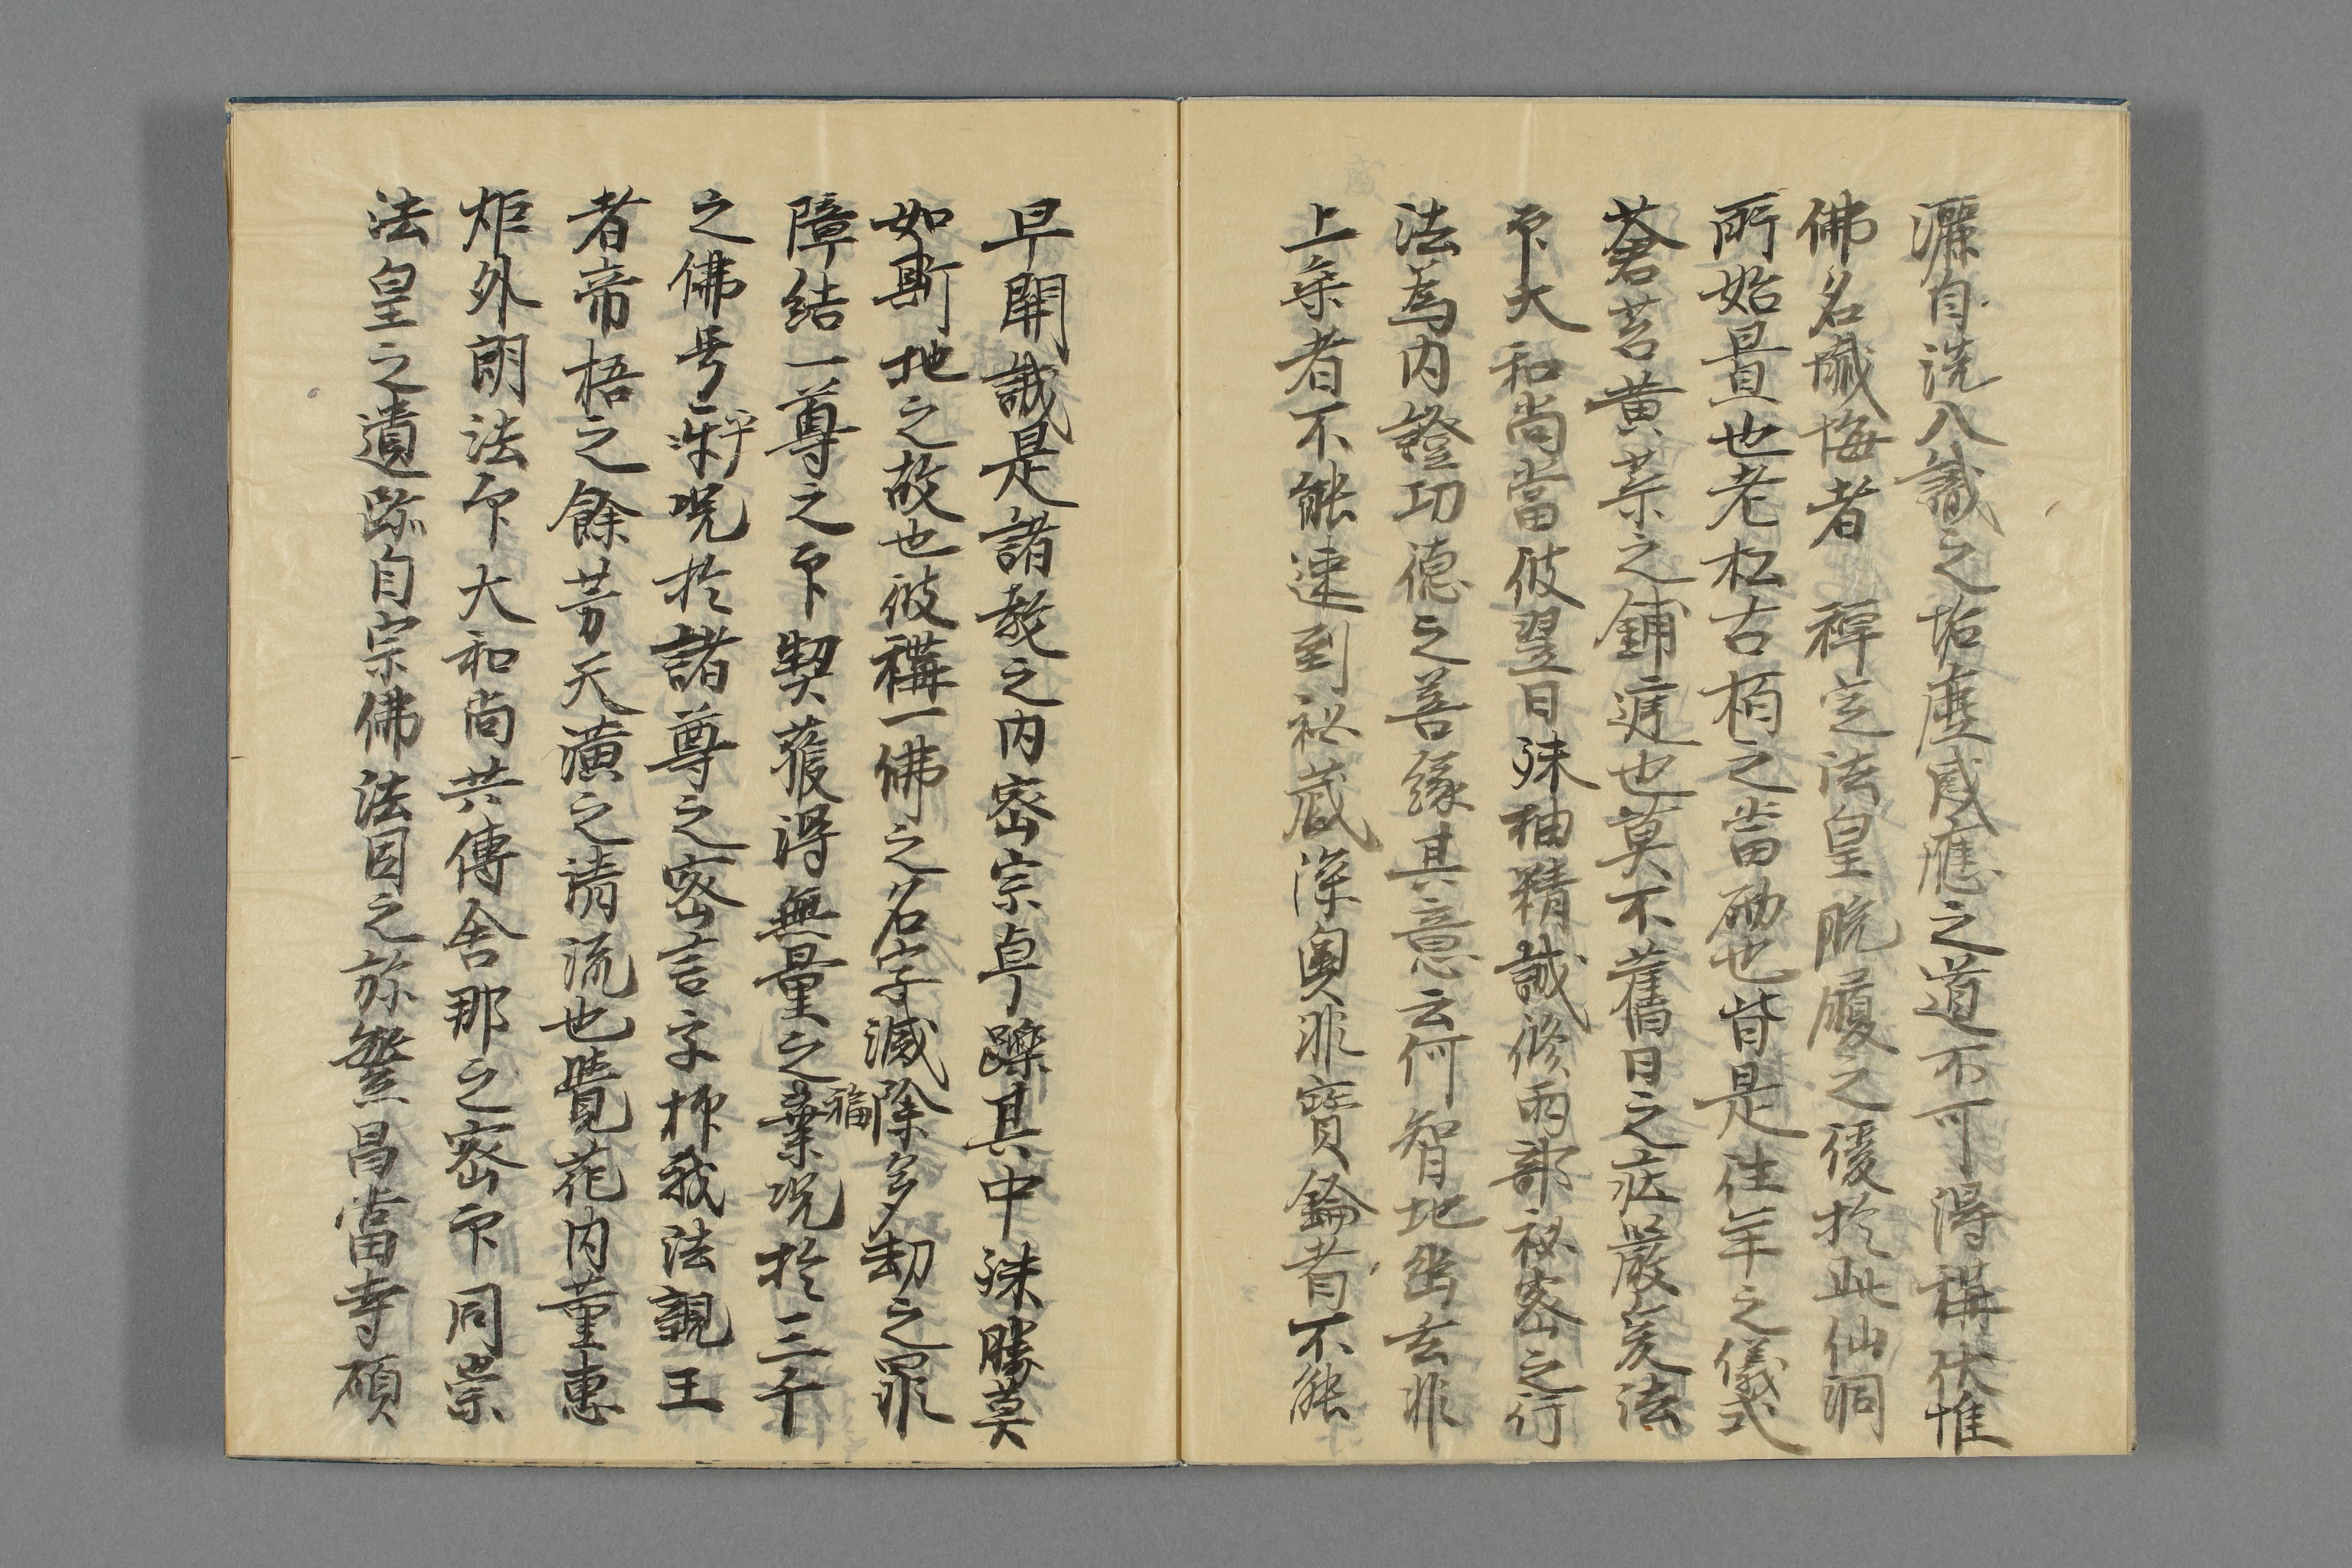 灑自洗八識之垢塵感應之道不可得稱伏惟
佛名懺悔者禅定法皇脱履之後於此仙洞
所始置也老松古栢之當砌也皆是往年之儀式
蒼苔黄葉之鋪庭也莫不舊日之庄嚴爰法
印大和尚當彼翌日殊抽精誠修両部秘密之行
法為内證功徳之善縁其意云何智地幽玄非
上乗者不能速到秘蔵深奥非寳鑰者不能
早開誠是諸教之内密宗卓躒其中殊勝莫
如斯地之故也彼稱一佛之名字滅除多劫之罪
障結一尊之印契獲得無量之福業况於三千
之佛号乎况於諸尊之密言乎抑我法親王
者帝梧之餘芳天潢之清流也覺花内薫惠
炬外朗法印大和尚共傳舎那之密印同崇
法皇之遺跡自宗佛法因之弥繁昌當寺碩